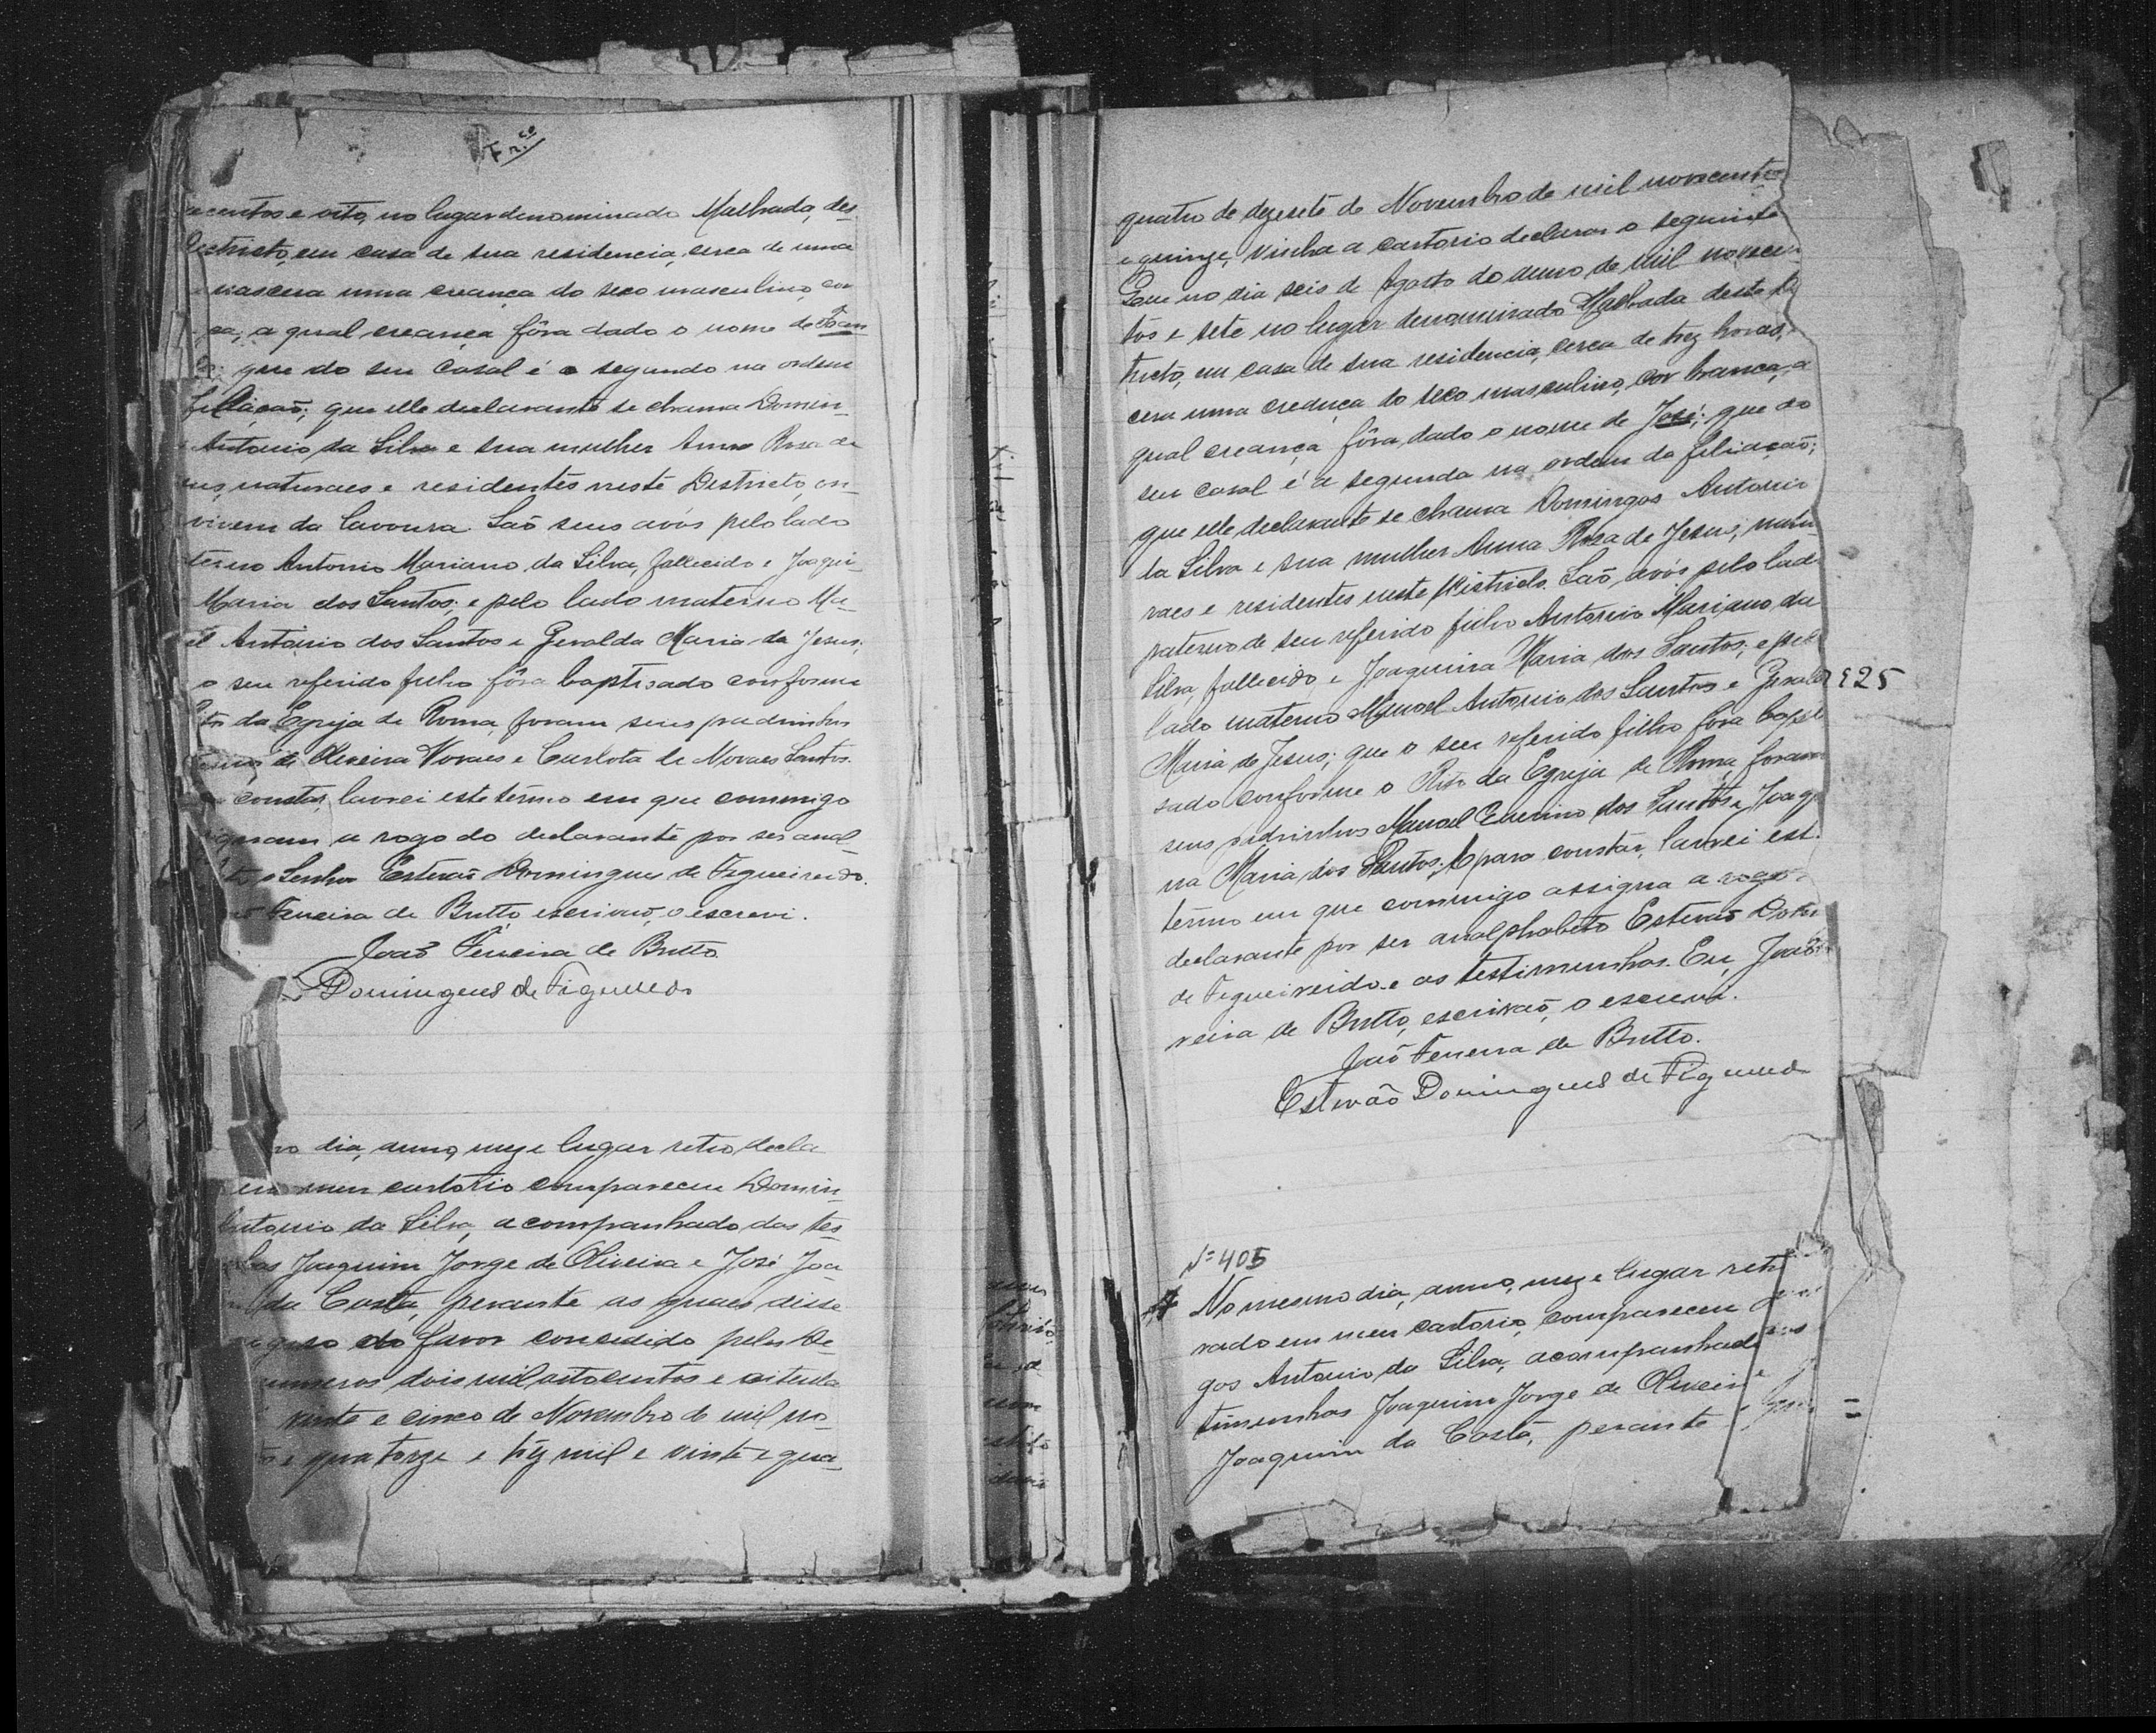 Fr.co
centos e oito, no lugar denominado Malhada, des
Destricto, em casa de sua residencia, cerca de uma
nascera uma creança do sexo masculino, cor
a qual creança fôra dado o nome de Fran
que do seu casal é o segundo na ordem
filiação; que elle declarante se chama Domin-
Antonio da Silva e sua mulher Anna Rosa de
naturaes e residentes neste Destricto, on-
vivem da lavoura. Saõ seus avós pelo lado
terno Antonio Mariano da Silva, fallecido e Joaqui-
Maria dos Santos; e pelo lado materno Ma-
el Antonio dos Santos e Geralda Maria de Jesus;
o seu referido filho fôra baptisado conforme
da Egreja de Roma, foram seus padrinhos
de Oliveira Novaes e Carlota de Novaes Santos.
constar, lavrei este têrmo em que commigo
a rogo do declarante por ser anal-
o Senhor Estevaõ Domingues de Figueiredo.
Ferreira de Britto, escrivaõ, o escrevi.
Joaõ Ferreira de Britto
Domingues de Figueiredo
dia, anno, mez e lugar retro decla
em meu cartorio compareceu Domin-
Antonio da Silva, acompanhado das tes-
Joaquim Jorge de Oliveira e José Joa
da Costa, perante as quaes disse
do favor concedido pelos De-
numeros dois mil oitocentos e oitenta
vinte e cinco de Novembro de mil no-
e quatorze e trez mil e vinte e qua-
quatro de dezesete de Novembro de mil novecentos
e quinze, vinha a cartorio declarar o seguinte
Que no dia seis de Agosto do anno de mil novecen
tos e sete no lugar denominado Malhada deste
tricto, em casa de sua residencia, cerca de trez horas,
cera uma creança do sexo masculino, cor branca, a
qual creança fôra dado o nome de José; que do
seu casal é a segunda na ordem da filiaçaõ;
que elle declarante se chama Domingos Antonio
da Silva e sua mulher Anna Rosa de Jesus, natu-
raes e residentes neste Districto. Saõ avós pelo lado
paterno de seu referido filho Antonio Mariano da
Silva, fallecido e Joaquina Maria dos Santos; e pelo
lado materno Manoel Antonio dos Santos e Geralda
Maria de Jesus; que o seu referido filho fora bapti
sado conforme o Rito da Egreja de Roma, foram
seus padrinhos Manoel dos Santos e Joaqui
na Maria dos Santos. E para constar, lavrei est
têrmo em que commigo assigna a rogo
declarante por ser analphabeto Estevaõ Dom
de Figueiredo e as testimunhas. Eu, Joaõ
reira de Britto, escrivaõ, o escrevi.
Joaõ Ferreira de Britto.
Estevão Domingues de Figueiredo
925
Nº 405
No mesmo dia, anno, mez e lugar retro
rado em meu cartorio, compareceu
gos Antonio da Silva, acompanhado
timunhas Joaquim Jorge de Oliveira
Joaquim da Costa, perante